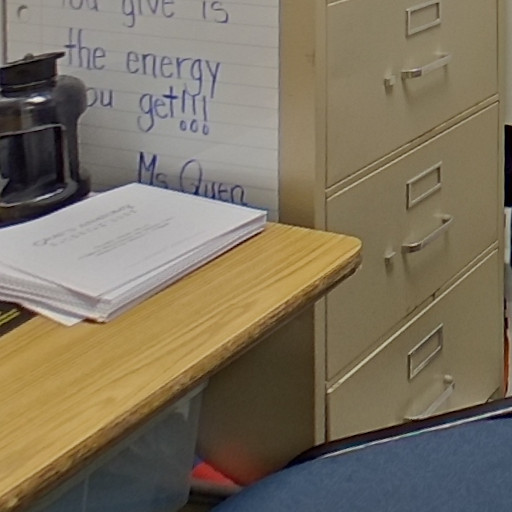 You give is
the energy
you get!!!
Ms. Quen